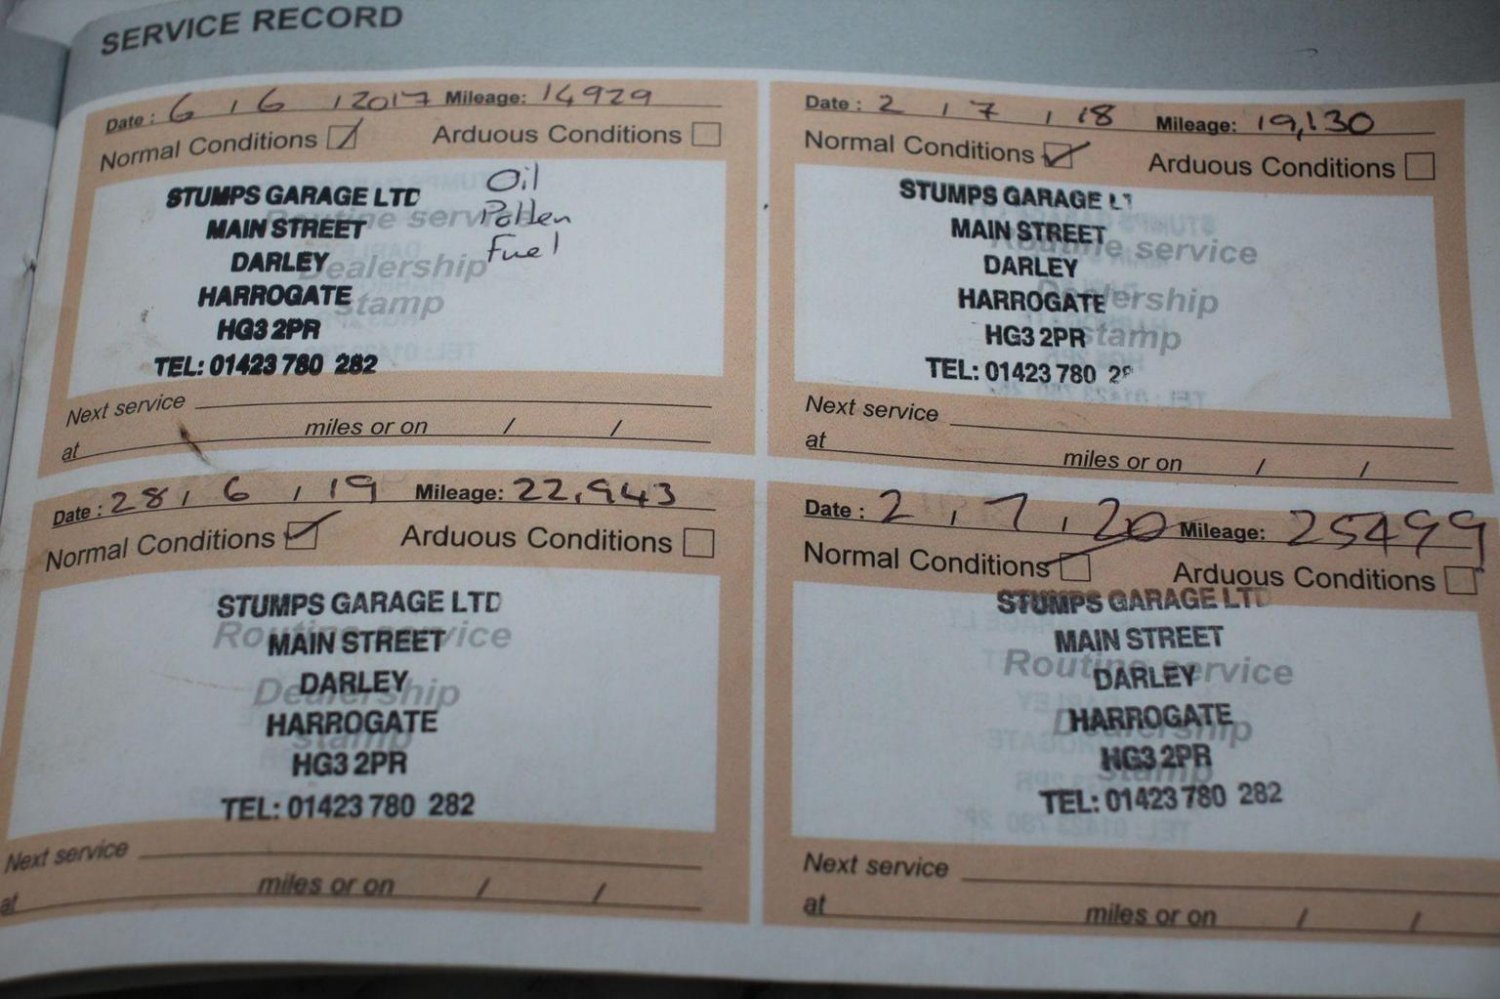 SERVICE RECORD
Date : 6 / 6 / 2017 Mileage: 14929
Normal Conditions Arduous Conditions
Oil
Pollen
Fuel
STUMPS GARAGE LTD
MAIN STREET
DARLEY
HARROGATE
HG3 2PR
TEL: 01423 780 282
Routine service
Dealership
stamp
Next service
at miles or on / /
Date : 2 / 7 / 18 Mileage: 19,130
Normal Conditions Arduous Conditions
STUMPS GARAGE LT
MAIN STREET
DARLEY
HARROGATE
HG3 2PR
TEL: 01423 780 28
Routine service
Dealership
stamp
Next service
at miles or on / /
Date : 28 / 6 / 19 Mileage: 22,943
Normal Conditions Arduous Conditions
STUMPS GARAGE LTD
MAIN STREET
DARLEY
HARROGATE
HG3 2PR
TEL: 01423 780 282
Routine service
Dealership
stamp
Next service
at miles or on / /
Date : 2 / 7 / 20 Mileage: 25499
Normal Conditions Arduous Conditions
STUMPS GARAGE LTD
MAIN STREET
DARLEY
HARROGATE
HG3 2PR
TEL: 01423 780 282
Routine service
Dealership
stamp
Next service
at miles or on / /